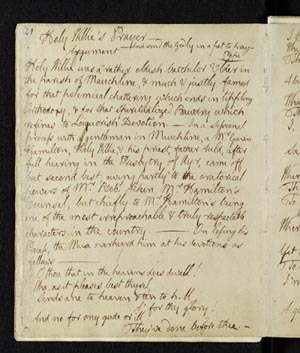 Holy Willie's Prayer —
And send the Godly in a pet to pray —
Argument
Pope
Holy Willie was a rather oldish batchelor Elder in
the parish of Mauchline, & much & justly famed
for that polemical chattering which ends in tippling
Orthodoxy, & for that Spiritualized Bawdry which
refines to Liquorish Devotion. — In a Sessional
process with a gentleman in Mauchline, a Mr Gavin
Hamilton, Holy Willie, & his priest, father Auld, after
full hearing in the Presbytry of Ayr, came off
but second best; owing partly to the oratorical
powers of Mr Robt Aiken, Mr Hamilton's
Counsel; but chiefly to Mr Hamilton's being
one of the most irreproachable & truly respectable
characters in the country — On losing his
Process, the Muse overheard him at his devotions as
follows —
O thou that in the heavens does dwell!
Wha, as it pleases best thysel,
Sends ane to heaven & ten to h-ll,
A' for thy glory!
And no for ony gude or ill
They've done before thee —